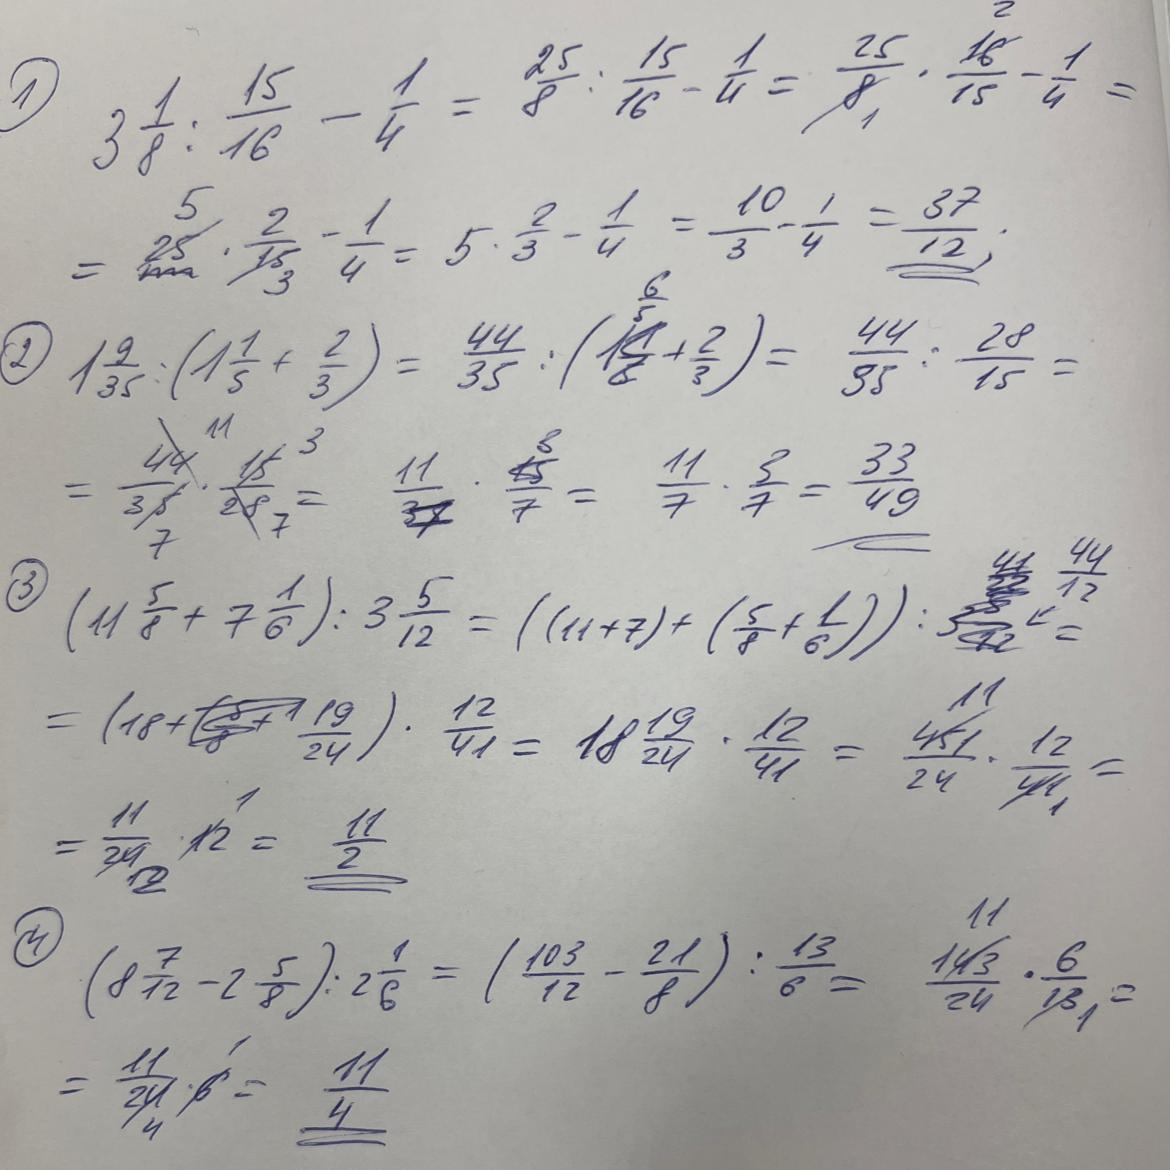 1) 3 1/8 : 15/16 - 1/4 = 25/8 : 15/16 - 1/4 = 25/8 1 · 16/15 2 - 1/4 =
= 5 25 · 2/15 3 - 1/4 = 5 · 2/3 - 1/4 = 10/3 - 1/4 = 37/12;
2) 1 9/35 : (1 1/5 + 2/3) = 44/35 : (6/5 + 2/3) = 44/35 : 28/15 =
= 44/35 11 7 · 15/28 3 7 = 11/7 · 3/7 = 11/7 · 3/7 = 33/49
3) (11 5/8 + 7 1/6) : 3 5/12 = ((11+7) + (5/8 + 1/6)) : 44/12 =
= (18 + 19/24) · 12/41 = 18 19/24 · 12/41 = 451/24 11 · 12/41 1 =
= 11/24 12 · 12 1 = 11/2
4) (8 7/12 - 2 5/8) : 2 1/6 = (103/12 - 21/8) : 13/6 = 143/24 11 · 6/13 1 =
= 11/24 4 · 6 1 = 11/4